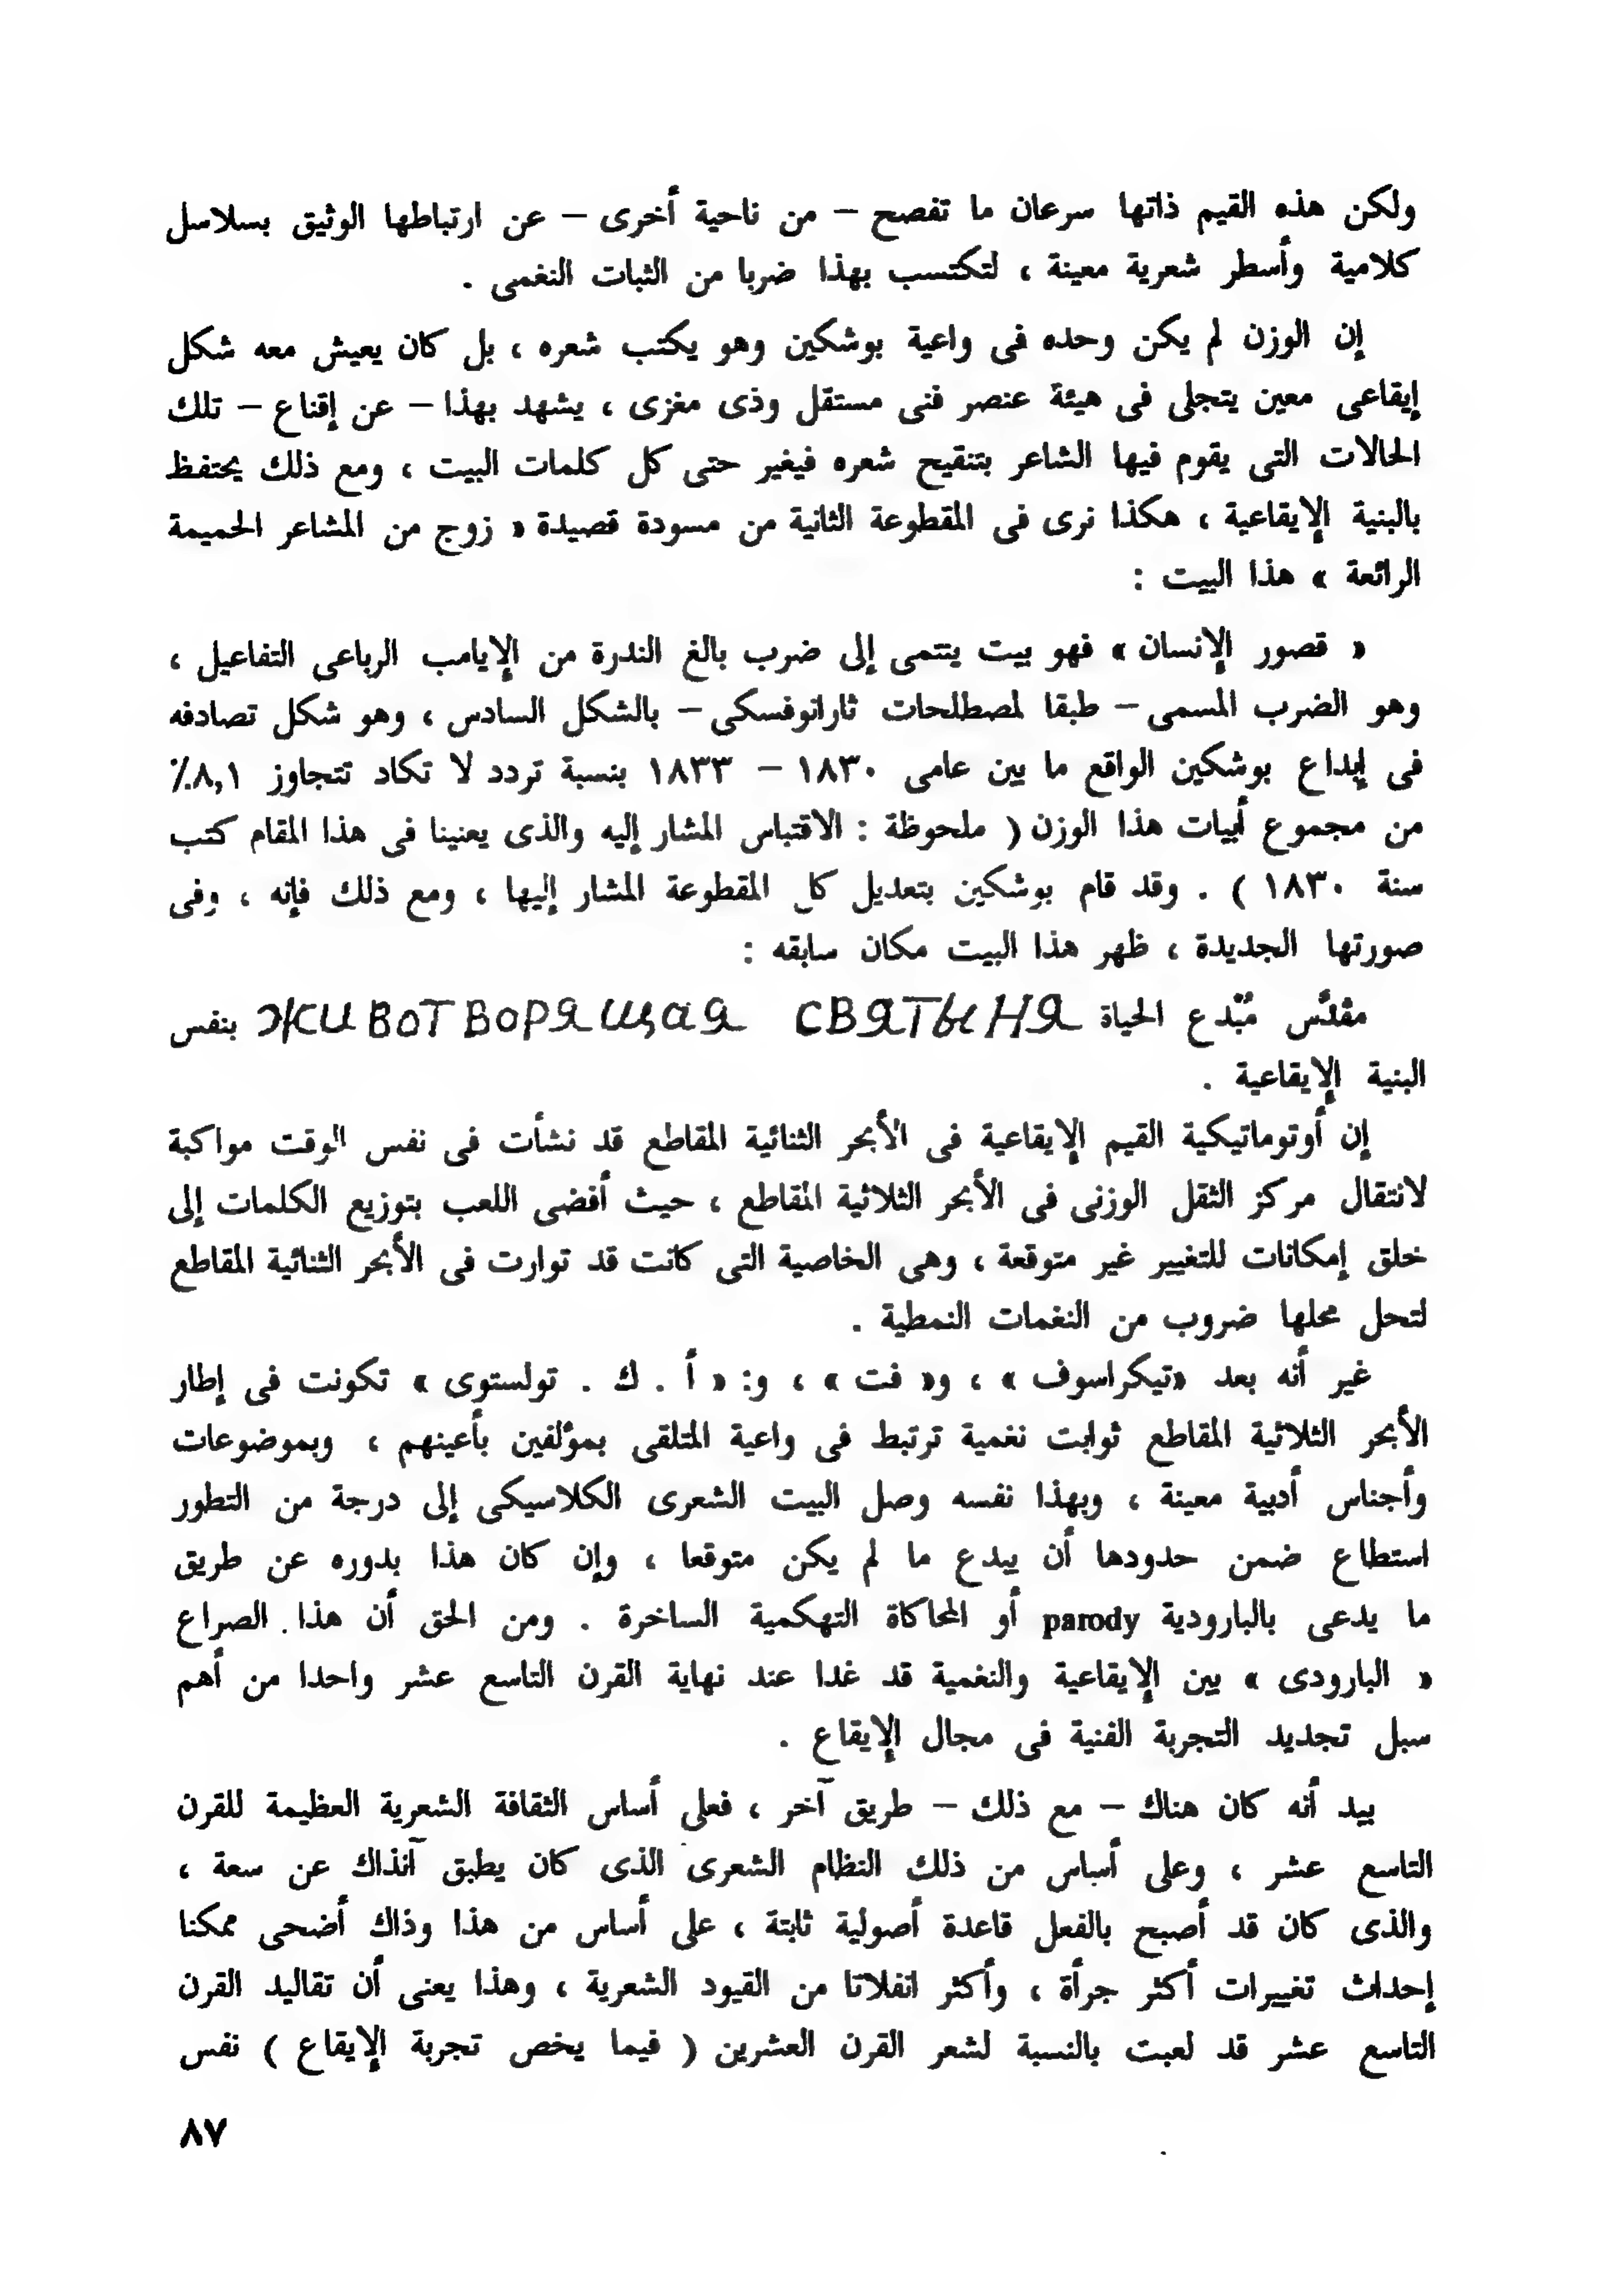 ولكن هذه القيم ذاتها سرعان ما تفصح – من ناحية أخرى – عن ارتباطها الوثيق بسلاسل
كلامية وأسطر شعرية معينة ، لتكتسب بهذا ضربا من الثبات النغمى .
إن الوزن لم يكن وحده فى واعية بوشكين وهو يكتب شعره ، بل كان يعيش معه شكل
إيقاعى معين يتجلى فى هيئة عنصر فنى مستقل وذى مغزى ، يشهد بهذا – عن إقناع – تلك
الحالات التى يقوم فيها الشاعر بتنقيح شعره فيغير حتى كل كلمات البيت ، ومع ذلك يحتفظ
بالبنية الإيقاعية ، هكذا نرى فى المقطوعة الثانية من مسودة قصيدة « زوج من المشاعر الحميمة
الرائعة » هذا البيت :
« قصور الإنسان » فهو بيت ينتمى إلى ضرب بالغ الندرة من الإيامب الرباعى التفاعيل ،
وهو الضرب المسمى – طبقا لمصطلحات ثارانوفسكى – بالشكل السادس ، وهو شكل تصادفه
فى إبداع بوشكين الواقع ما بين عامى ١٨٣٠ – ١٨٣٣ بنسبة تردد لا تكاد تتجاوز ٨,١٪
من مجموع أبيات هذا الوزن ( ملحوظة : الاقتباس المشار إليه والذى يعنينا فى هذا المقام كتب
سنة ١٨٣٠ ) . وقد قام بوشكين بتعديل كل المقطوعة المشار إليها ، ومع ذلك فإنه ، وفى
صورتها الجديدة ، ظهر هذا البيت مكان سابقه :
مقدَّس مُبْدع الحياة животворящая святыня بنفس
البنية الإيقاعية .
إن أوتوماتيكية القيم الإيقاعية فى الأبحر الثنائية المقاطع قد نشأت فى نفس الوقت مواكبة
لانتقال مركز الثقل الوزنى فى الأبحر الثلاثية المقاطع ، حيث أفضى اللعب بتوزيع الكلمات إلى
خلق إمكانات للتغيير غير متوقعة ، وهى الخاصية التى كانت قد توارت فى الأبحر الثنائية المقاطع
لتحل محلها ضروب من النغمات النمطية .
غير أنه بعد «تيكراسوف » ، و« فت » ، و: « أ . ك . تولستوى » تكونت فى إطار
الأبحر الثلاثية المقاطع ثوابت نغمية ترتبط فى واعية المتلقى بمؤلفين بأعينهم ، وبموضوعات
وأجناس أدبية معينة ، وبهذا نفسه وصل البيت الشعرى الكلاسيكى إلى درجة من التطور
استطاع ضمن حدودها أن يبدع ما لم يكن متوقعا ، وإن كان هذا بدوره عن طريق
ما يدعى بالبارودية parody أو المحاكاة التهكمية الساخرة . ومن الحق أن هذا الصراع
« البارودى » بين الإيقاعية والنغمية قد غدا عند نهاية القرن التاسع عشر واحدا من أهم
سبل تجديد التجربة الفنية فى مجال الإيقاع .
بيد أنه كان هناك – مع ذلك – طريق آخر ، فعلى أساس الثقافة الشعرية العظيمة للقرن
التاسع عشر ، وعلى أساس من ذلك النظام الشعرى الذى كان يطبق آنذاك عن سعة ،
والذى كان قد أصبح بالفعل قاعدة أصولية ثابتة ، على أساس من هذا وذاك أضحى ممكنا
إحداث تغييرات أكثر جرأة ، وأكثر انفلاتا من القيود الشعرية ، وهذا يعنى أن تقاليد القرن
التاسع عشر قد لعبت بالنسبة لشعر القرن العشرين ( فيما يخص تجربة الإيقاع ) نفس
٨٧